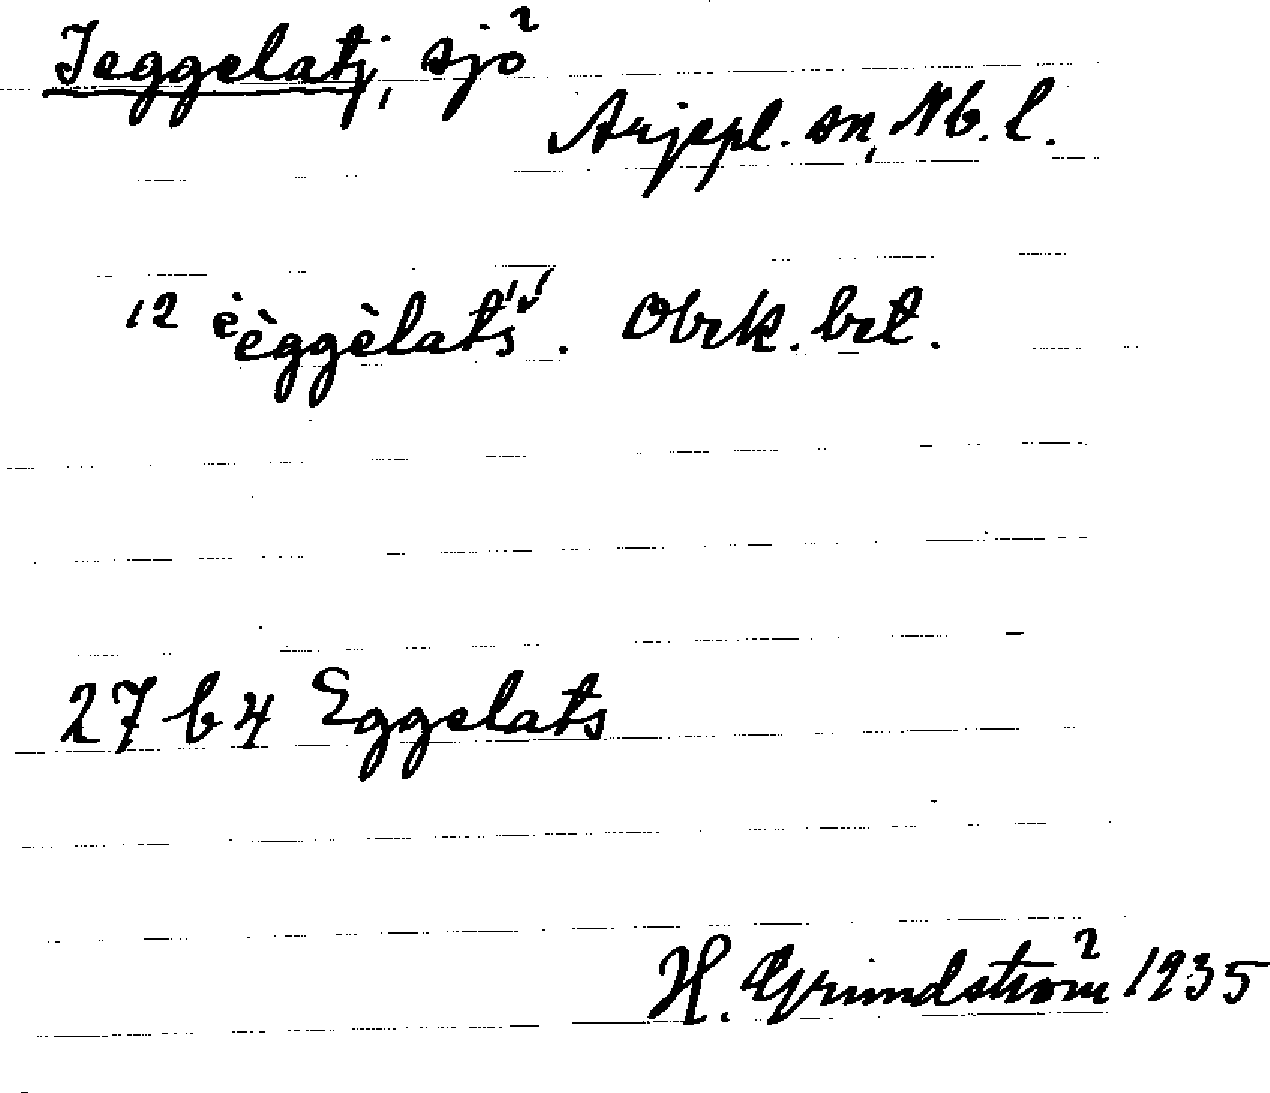 Jeggelatj, sjö
Arjepl. sn, Nb. l.
12 ėèggėlatš́. Obrk. bet.
27 b 4 Eggelats
H. Grundström 1935